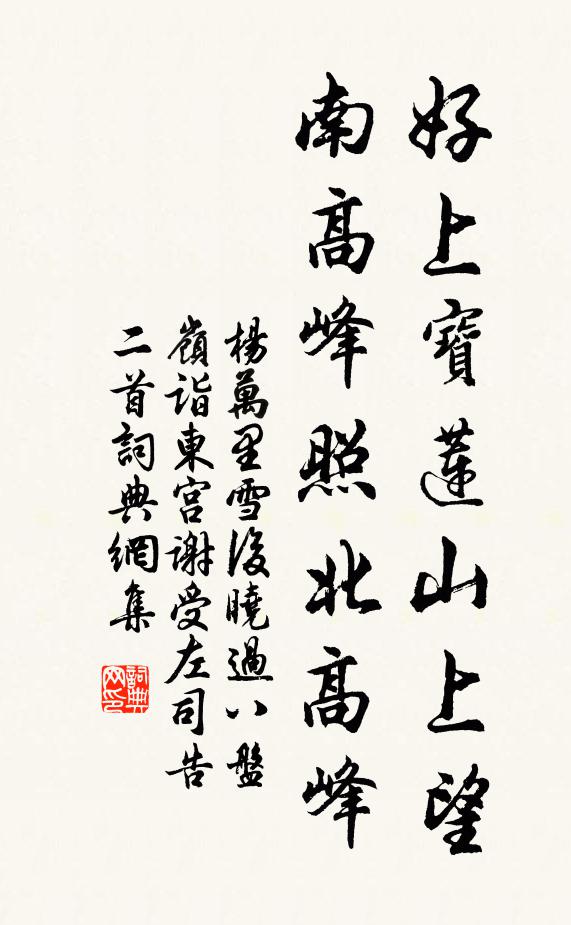 好上寶蓮山上望
南高峰照北高峰
楊萬里雪後曉過八盤
嶺詣東宮謝受左司告
二首詞典網集
詞典網印